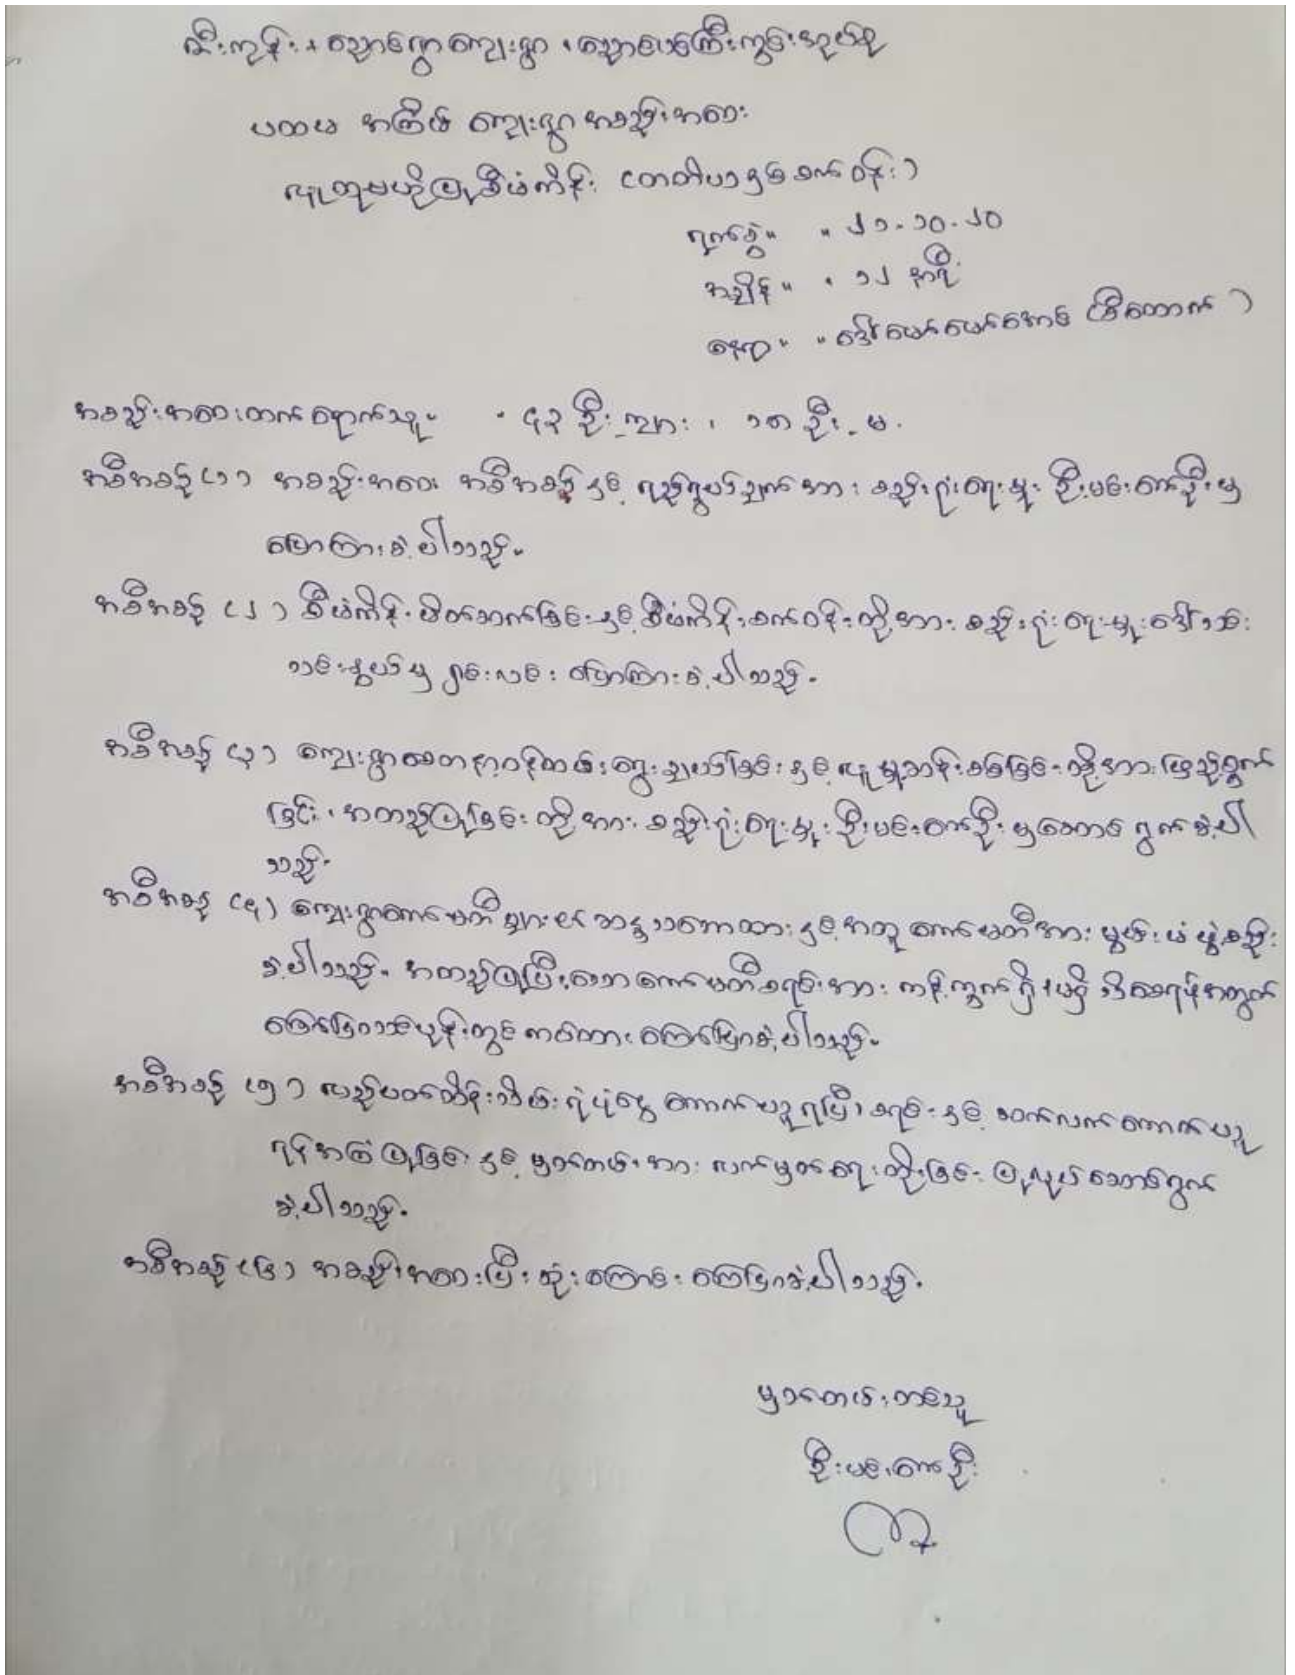 ဆီးကုန်း ၊ ညောင်ဇင်ကျေးရွာ ၊ ညောင်ကြီးကွင်းအုပ်စု
ပထမ အကြိမ် ကျေးရွာ အစည်းအဝေး
လူထုဗဟိုပြုစီမံကိန်း (တတိယနှစ်စက်ဝန်း)
ရက်စွဲ။ ။ ၂၁-၁၀-၂၀
အချိန်။ ။ ၁၂ နာရီ
နေရာ။ ။ ဒေါ်မော်မော်အောင် ခြံထောက် )
အစည်းအဝေးတက်ရောက်သူ။ ။ ၄၃ ဦး_ကျား ၊ ၁၈ ဦး_မ.
အစီအစဉ် (၁) အစည်းအဝေး အစီအစဉ်နှင့် ရည်ရွယ်ချက်အား စည်းရုံးရေးမှူး ဦးမင်းဇော်ဦးမှ
ပြောကြားခဲ့ပါသည်။
အစီအစဉ် (၂) စီမံကိန်းမိတ်ဆက်ခြင်းနှင့် စီမံကိန်းစက်ဝန်းတို့အား စည်းရုံးရေးမှူးဒေါ်သင်း
သင်းနွယ်မှ ရှင်းလင်း ပြောကြားခဲ့ပါသည်။
အစီအစဉ် (၃) ကျေးရွာစေတနာ့ဝန်ထမ်းရွေးချယ်ခြင်းနှင့် လူမှုဆန်းစစ်ခြင်းတို့အား ဖြည့်စွက်
ခြင်း ၊ အတည်ပြုခြင်းတို့အား စည်းရုံးရေးမှူး ဦးမင်းဇော်ဦးမှဆောင်ရွက်ခဲ့ပါ
သည်။
အစီအစဉ် (၄) ကျေးရွာကော်မတီများ၏ ဆန္ဒသဘောထားနှင့်အတူ ကော်မတီအား မွမ်းမံဖွဲ့စည်း
ခဲ့ပါသည်။ အတည်ပြုပြီးသော ကော်မတီစာရင်းအား ကန့်ကွက်ရှိ၊မရှိ သိစေရန်အတွက်
ကြော်ငြာသင်ပုန်းတွင် ကပ်ထား ကြေငြာခဲ့ပါသည်။
အစီအစဉ် (၅) လည်ပတ်ထိန်းသိမ်းရံပုံငွေ ကောက်ယူရပြီးစာရင်းနှင့် ဆက်လက်ကောက်ယူ
ရန်အကြံပြုခြင်းနှင့် မှတ်တမ်းအား လက်မှတ်ရေးထိုးခြင်း ပြုလုပ်ဆောင်ရွက်
ခဲ့ပါသည်။
အစီအစဉ် (၆) အစည်းအဝေးပြီးဆုံးကြောင်း ကြေငြာခဲ့ပါသည်။
မှတ်တမ်းတင်သူ
ဦးမင်းဇော်ဦး